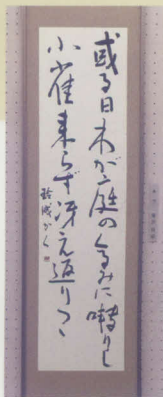 或る日木が庭のくるみに囀りし
小雀来らず冴え返りつゝ
かく